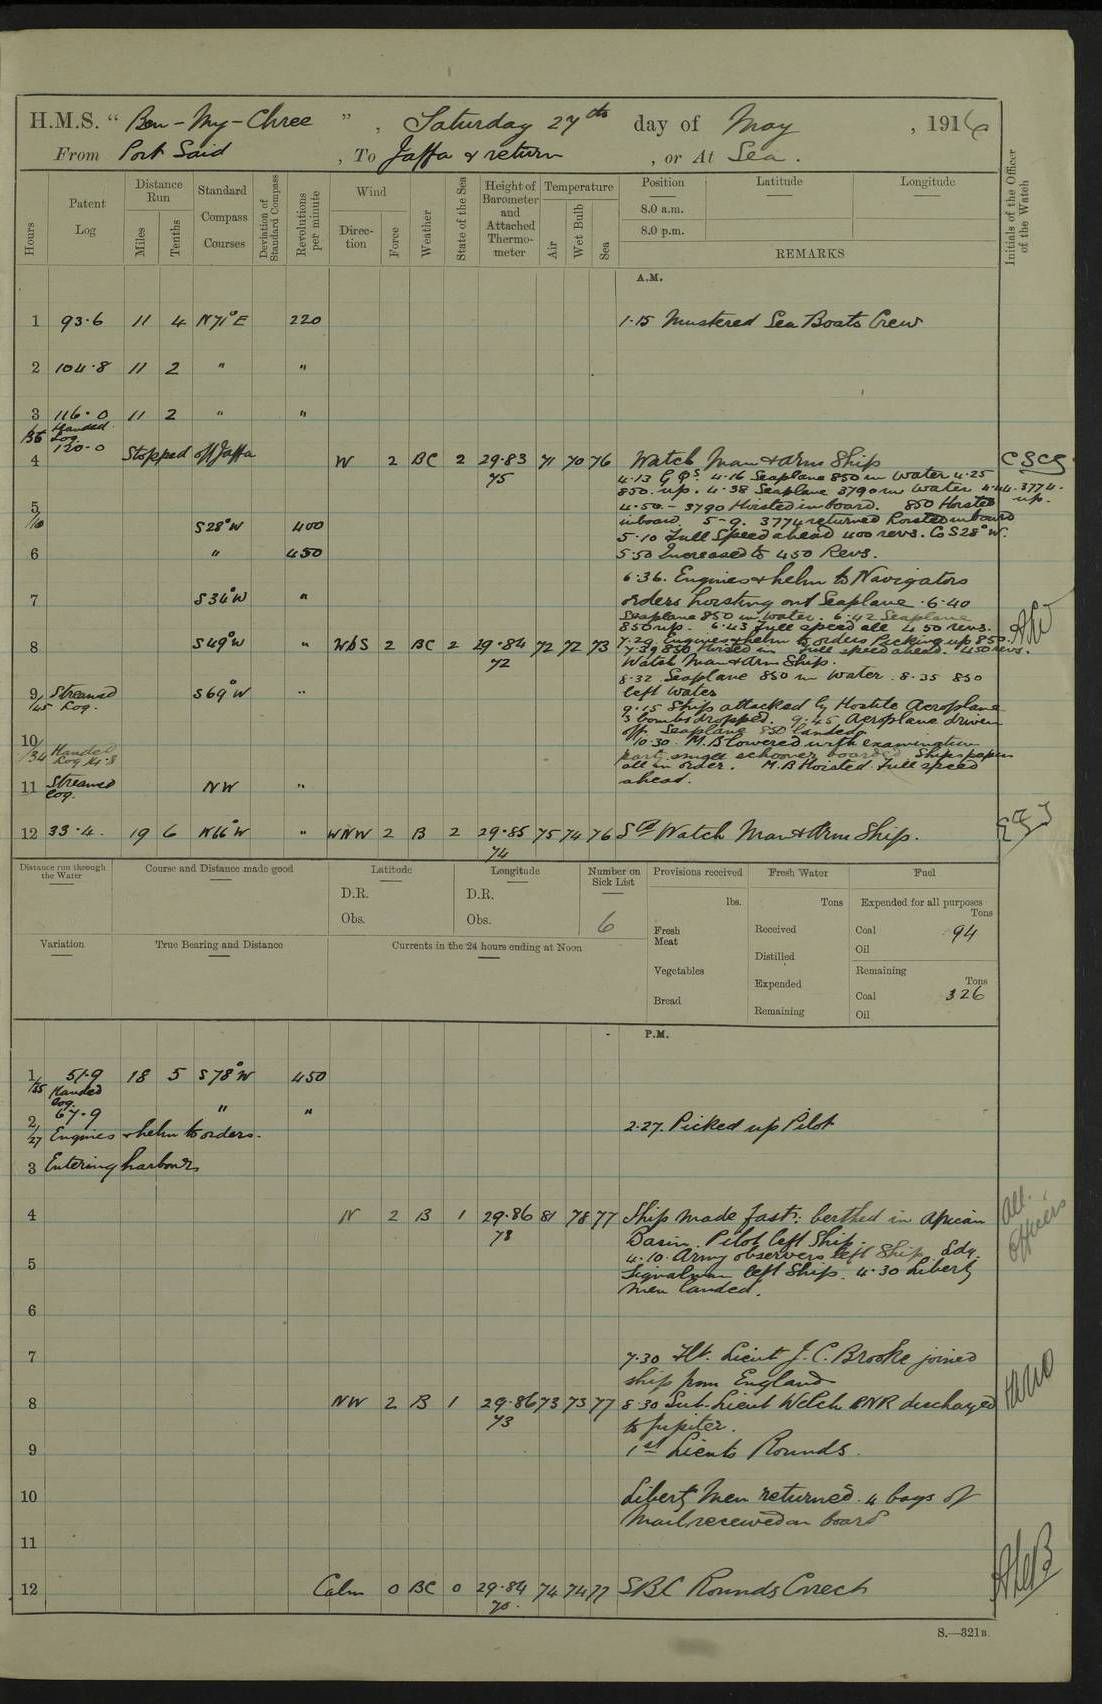 H.M.S. " Ben-My-Chree " , Saturday 27th day of May , 1916
From Port Said , To Jaffa & return , or At Sea.
Hours
Patent Log
Distance Run
Miles
Tenths
Standard Compass Courses
Deviation of Standard Compass
Revolutions per minute
Wind
Direction
Force
Weather
State of the Sea
Height of Barometer and Attached Thermometer
Temperature
Air
Wet Bulb
Sea
Position
Latitude
Longitude
8.0 a.m.
8.0 p.m.
REMARKS
Initials of the Officer of the Watch
A.M.
1 93.6 11 4 N71°E 220 1.15 Mustered Sea Boats Crew
2 104.8 11 2 " "
3 116.0 11 2 " "
Handed Log
120.0
4 Stopped off Jaffa W 2 BC 2 29.83 71 70 76 Watch Man & Arm Ship
75
4.13 G Qs. 4.16 Seaplane 850 in water 4.25
850 up. 4.38 Seaplane 3790 in water 4.44 3774 up.
5 4.50 - 3790 Hoisted inboard. 850 Hoisted
/10 S28°W 400 inboard 5-9. 3774 returned hoisted inboard
5.10 Full Speed ahead 400 revs. Co S28°W.
6 " 450 5.50 Increased to 450 Revs.
6.36. Engines & helm to Navigators
7 S34°W " orders hoisting out Seaplane. 6.40
Seaplane 850 in water. 6.42 Seaplane
850 up. 6.43 full speed all 450 revs.
8 S49°W " WbS 2 BC 2 29.84 72 72 73 7.29 Engines & helm to orders Picking up 850.
72
7.39 850 Hoisted in full speed ahead. 450 revs.
Watch Man & Arm Ship.
8.32 Seaplane 850 in water. 8.35 850
9 Streamed S69°W " left water
/45 Log.
9.15 Ship attacked by Hostile Aeroplane
3 bombs dropped. 9.45 Aeroplane driven
off. Seaplane 850 landed
10 10.30. M.B lowered with examination
/34 Handed Log party small schooner boarded Ships papers
all in order. M.B Hoisted. Full speed
11 Streamed Log. NW " ahead.
12 33.4. 19 6 N66°W " WNW 2 B 2 29.85 75 74 76 Sd Watch Man & Arm Ship.
74
Distance run through the Water
Course and Distance made good
Latitude
D.R.
Obs.
Longitude
D.R.
Obs.
Number on Sick List
6
Provisions received
lbs.
Fresh Meat
Vegetables
Bread
Fresh Water
Tons
Received
Distilled
Expended
Remaining
Fuel
Expended for all purposes
Tons
Coal 94
Oil
Remaining
Tons
Coal 326
Oil
Variation
True Bearing and Distance
Currents in the 24 hours ending at Noon
P.M.
1 51.9 18 5 S78°W 450
/55 Handed log.
67.9 " "
2 2.27. Picked up Pilot
/27 Engines & helm to orders.
3 Entering harbour
4 N 2 B 1 29.86 81 78 77 Ship made fast: berthed in African
78
Basin. Pilot left Ship.
4.10. Army observers left Ship. Ldg.
5 Signalman left Ship. 4.30 Liberty
Men landed.
All Officers
6
7 7.30 Flt. Lieut J. C. Brooke joined
ship from England
8 NW 2 B 1 29.86 73 73 77 8.30 Sub-Lieut Welch RNR discharged
73
to Jupiter.
9 1st Lieuts Rounds.
10 Liberty Men returned. 4 bags of
Mail received on board
11
12 Calm 0 BC 0 29.84 74 74 77 SBC Rounds Correct
70.
S.—321B.